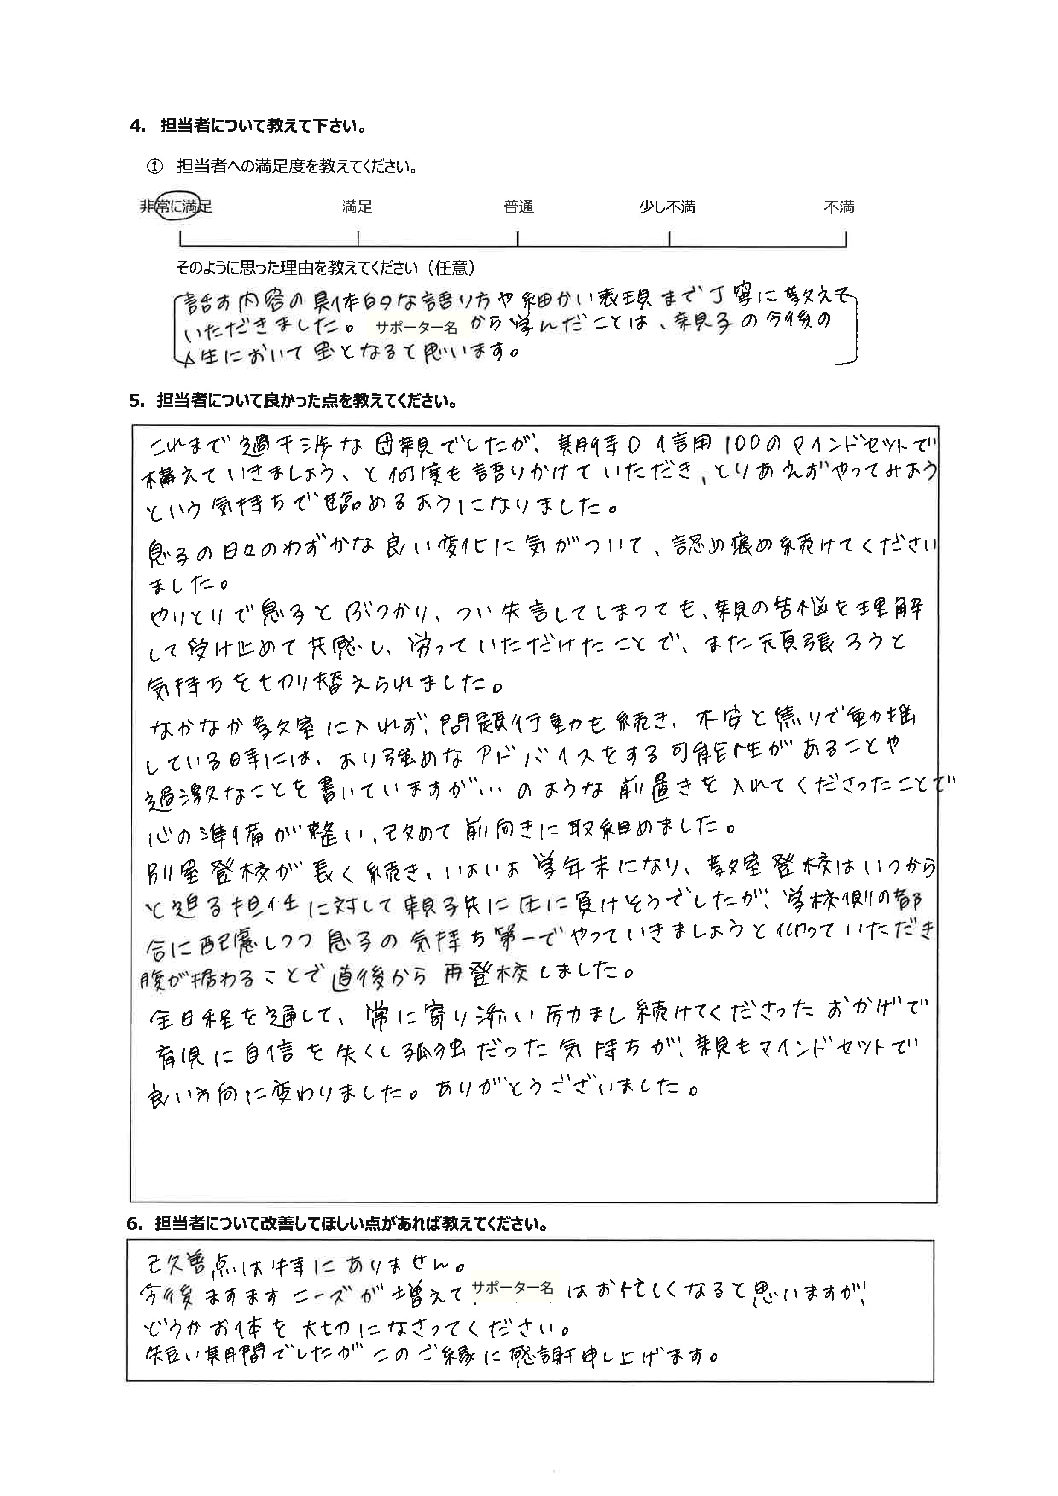 4. 担当者について教えて下さい。
① 担当者への満足度を教えてください。
非常に満足 満足 普通 少し不満 不満
そのように思った理由を教えてください（任意）
話す内容の具体的な語り方や細かい表現まで丁寧に教えて
いただきました。 サポーター名 から学んだことは、親子の今後の
人生において宝となると思います。
5. 担当者について良かった点を教えてください。
これまで過干渉な母親でしたが、期待0信用100のマインドセットで
構えていきましょう、と何度も語りかけていただき、とりあえずやってみよう
という気持ちで臨めるようになりました。
息子の日々のわずかな良い変化に気がついて、認め褒め続けてください
ました。
やりとりで息子とぶつかり、つい失言してしまっても、親の苦悩を理解
して受け止めて共感し、労っていただけたことで、また頑張ろうと
気持ちを切り替えられました。
なかなか教室に入れず、問題行動も続き、不安と焦りで動揺
している時には、より強めなアドバイスをする可能性があることや
過激なことを書いていますが…のような前置きを入れてくださったことで
心の準備が整い、改めて前向きに取組めました。
別室登校が長く続き、いよいよ学年末になり、教室登校はいつから
と迫る担任に対して親子共に圧に負けそうでしたが、学校側の都
合に配慮しつつ息子の気持ち第一でやっていきましょうと仰っていただき
腹が据わることで直後から再登校しました。
全日程を通して、常に寄り添い励まし続けてくださったおかげで
育児に自信を失くし孤独だった気持ちが、親もマインドセットで
良い方向に変わりました。ありがとうございました。
6. 担当者について改善してほしい点があれば教えてください。
改善点は特にありません。
今後ますますニーズが増えて サポーター名 はお忙しくなると思いますが、
どうかお体を大切になさってください。
短い期間でしたがこのご縁に感謝申し上げます。